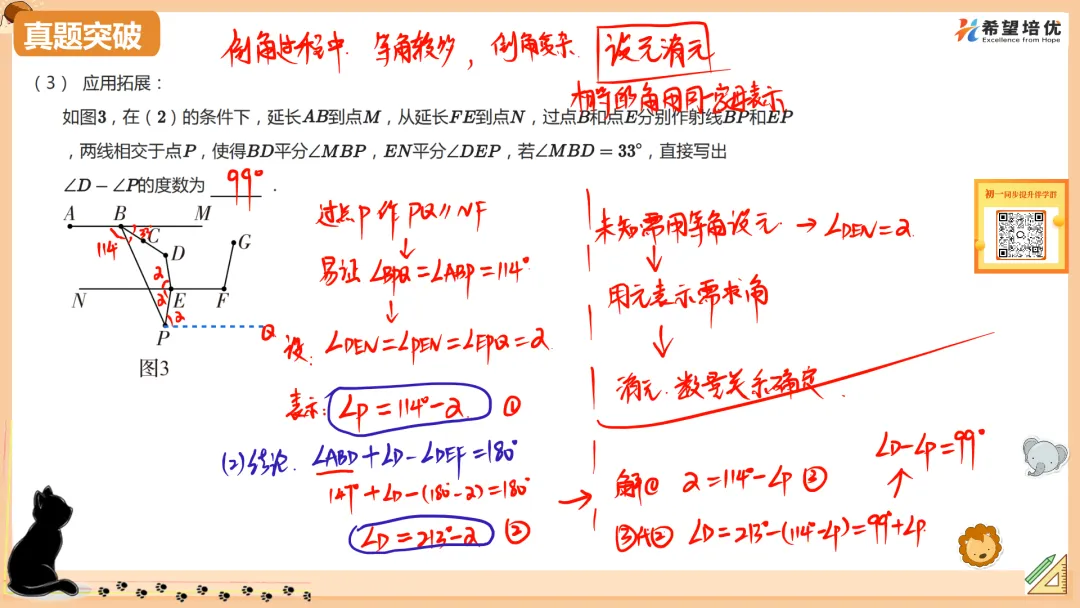 真题突破
希望培优
Excellence from Hope
倒角过程中 等角较多，倒角复杂 设元消元
相等的角用同一字母表示
（3） 应用拓展：
如图3，在（2）的条件下，延长AB到点M，从延长FE到点N，过点B和点E分别作射线BP和EP
，两线相交于点P，使得BD平分∠MBP，EN平分∠DEP，若∠MBD = 33°，直接写出
∠D − ∠P的度数为 99° .
初一同步提升伴学群
A B M
114 C
D G
2
N 2 E F
2
P Q
图3
过点P作PQ∥NF
↓
易证∠BPQ=∠ABP=114°
↓
设: ∠DEN=∠PEN=∠EPQ=2
表示: ∠P=114°-2 ①
(2)结论. ∠ABD+∠D-∠DEF=180°
147°+∠D-(180°-2)=180°
∠D=213°-2 ②
未知需用等角设元 → ∠DEN=2
↓
用元表示需求角
↓
消元.数量关系确定.
→ 解① 2=114°-∠P ③
③代② ∠D=213°-(114°-∠P)=99°+∠P
↑
∠D-∠P=99°